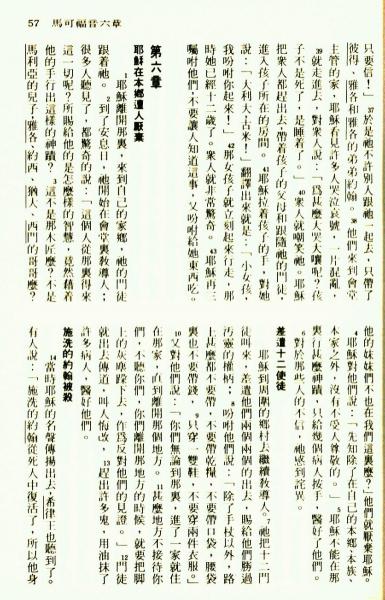 57 馬可福音六章
只要信！」37於是祂不許別人跟祂一起去，只帶了
彼得、雅各和雅各的弟弟約翰。38他們來到會堂
主管的家，耶穌看見許多人哭泣哀號，一片混亂，
39就走進去，對衆人說：「爲甚麼大哭大嚷呢？孩
子不是死了，是睡着了。」40衆人就嘲笑祂。耶穌
把衆人都趕出去，帶着孩子的父母和跟隨祂的門徒，
進入孩子所在的房間。41耶穌拉着孩子的手，對她
說：「大利大古米！」翻譯出來就是：「小女孩，
我吩咐你起來！」42那女孩子就立刻起來行走，那
時她已經十二歲了。衆人就非常驚奇。43耶穌再三
囑咐他們，不要讓人知道這事，又吩咐給她東西吃。
第六章
耶穌在本鄉遭人厭棄
1耶穌離開那裏，來到自己的家鄉，祂的門徒
跟着祂。2到了安息日，祂開始在會堂裏敎導人；
很多人聽見了，都驚奇的說：「這個人從那裏得來
這一切呢？所賜給他的是怎麼樣的智慧？竟然藉着
他的手行出這樣的神蹟？3這不是那木匠麼？不是
馬利亞的兒子，雅各、約西、猶大、西門的哥哥麼？
他的妹妹們不也在我們這裏麼？」他們就厭棄耶穌。
4耶穌對他們說：「先知除了在自己的本鄉、本族、
本家之外，沒有不受人尊敬的。」5耶穌不能在那
裏行甚麼神蹟，只給幾個病人按手，醫好了他們。
6對於那些人的不信，祂感到詫異。
差遣十二使徒
耶穌到周圍的鄉村去繼續敎導人。7祂把十二門
徒叫來，差遣他們兩個兩個的出去，賜給他們勝過
汚靈的權柄；8吩咐他們說：「除了手杖以外，路
上甚麼都不要帶，不要帶乾糧，不要帶口袋，腰袋
裏也不要帶錢，9只穿一雙鞋，不要穿兩件衣服。」
10又對他們說：「你們無論到那裏，進了一家就住
在那家，直到離開那個地方。11甚麼地方不接待你
們，不聽你們，你們離開那地方的時候，就要把脚
上的灰塵跺下去，作爲反對他們的見證。」12門徒
就出去傳道，叫人悔改，13趕出許多鬼，用油抹了
許多病人，醫好他們。
施洗的約翰被殺
14當時耶穌的名聲傳揚出去，希律王也聽到了。
有人說：「施洗的約翰從死人中復活了，所以他身